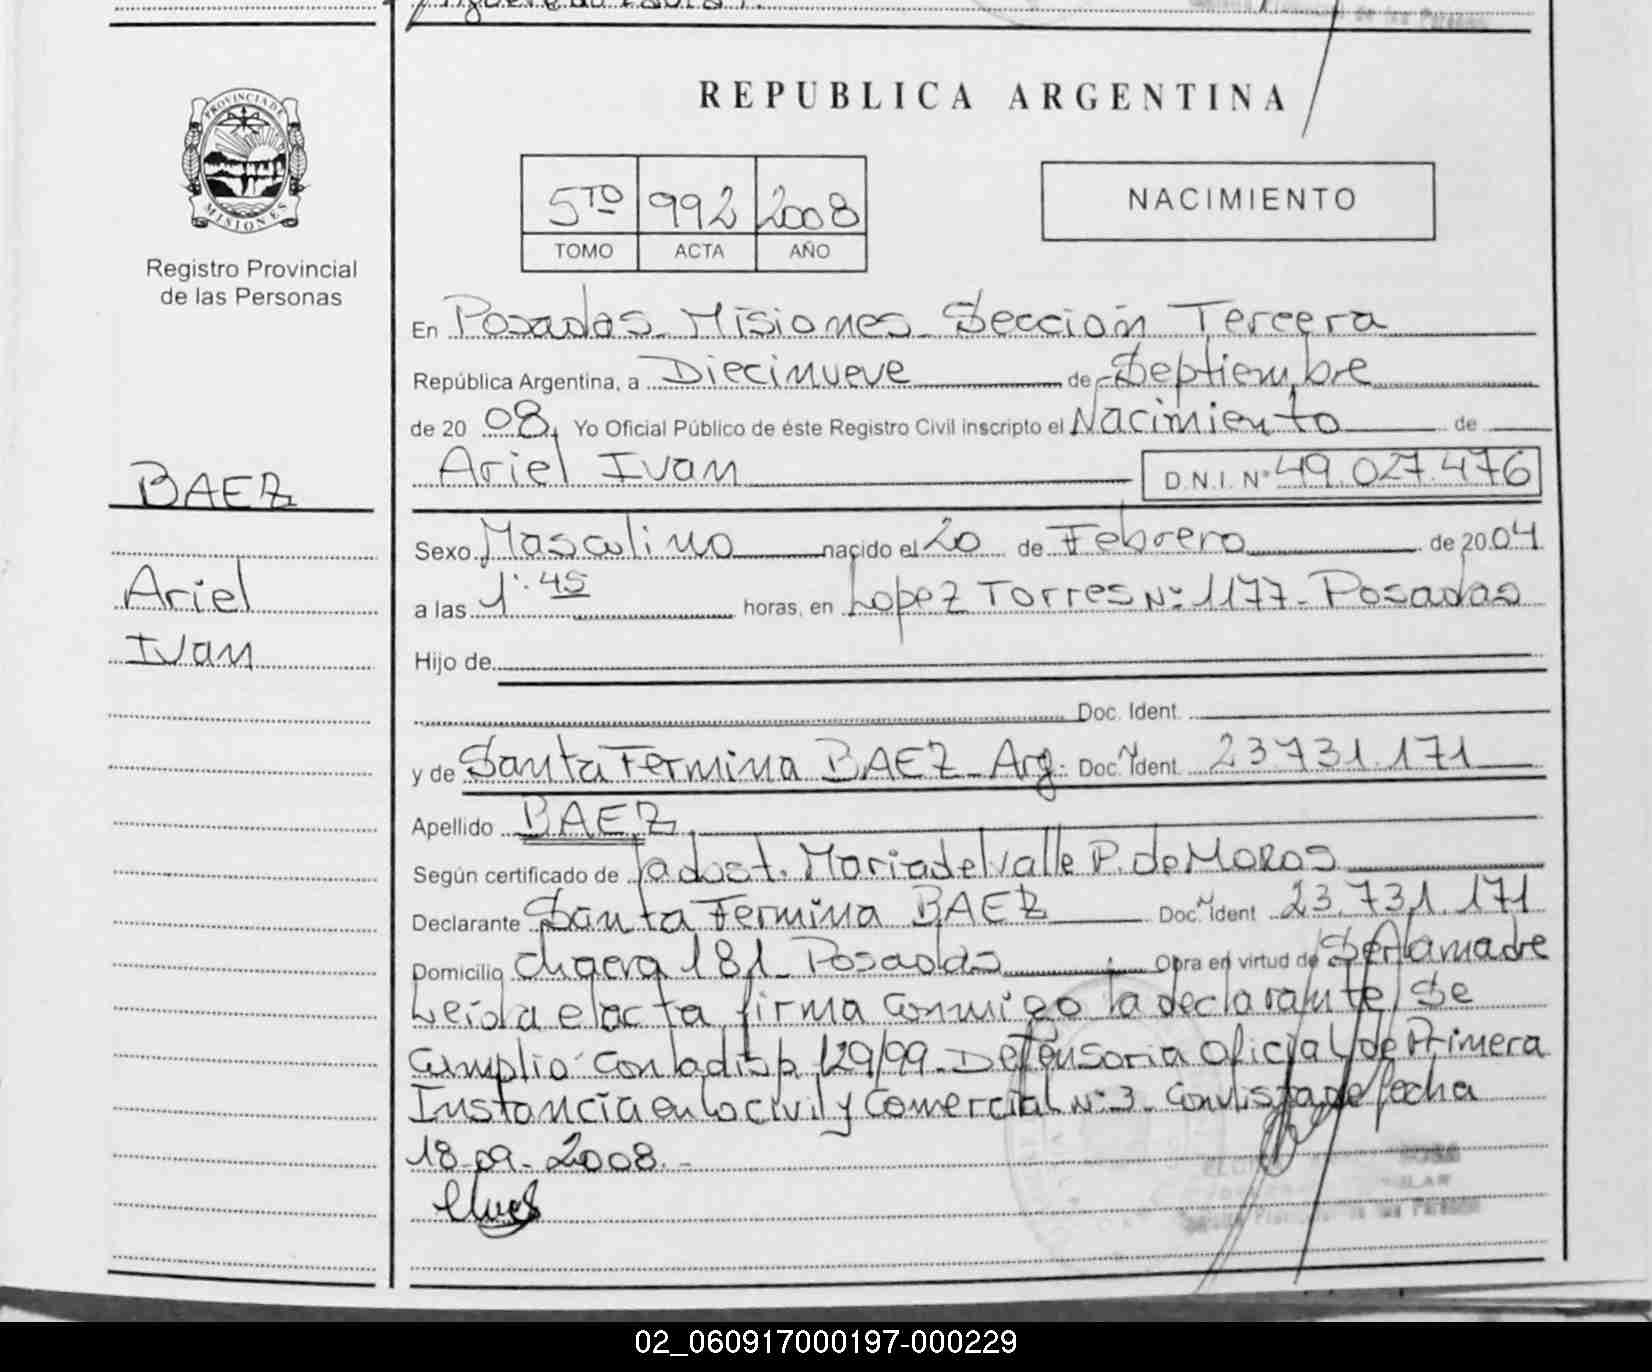 REPUBLICA ARGENTINA
PROVINCIA DE
MISIONES
Registro Provincial
de las Personas
5TO 992 2008
TOMO ACTA AÑO
NACIMIENTO
En Posadas. Misiones. Sección Tercera
República Argentina, a Diecinueve de Septiembre
de 20 08, Yo Oficial Público de éste Registro Civil inscripto el Nacimiento de
Ariel Ivan D.N.I. N° 49.027.476
BAEZ
Ariel
Ivan
Sexo Masculino nacido el 20 de Febrero de 2004
a las 1:45 horas, en Lopez Torres N° 1177 - Posadas
Hijo de
Doc. Ident.
y de Santa Fermina BAEZ - Arg. Doc. Ident. 23731.171
Apellido BAEZ
Según certificado de la obst. Maria del Valle P. de MOROS
Declarante Santa Fermina BAEZ Doc. Ident 23.731.171
Domicilio chacra 181 - Posadas Obra en virtud de Ser la madre
Leída el acta firma conmigo la declarante / Se
cumplio con la disp. 129/99 - Defensoria Oficial de Primera
Instancia en lo civil y Comercial N° 3 - con vista de fecha
18-09-2008.-
02_060917000197-000229